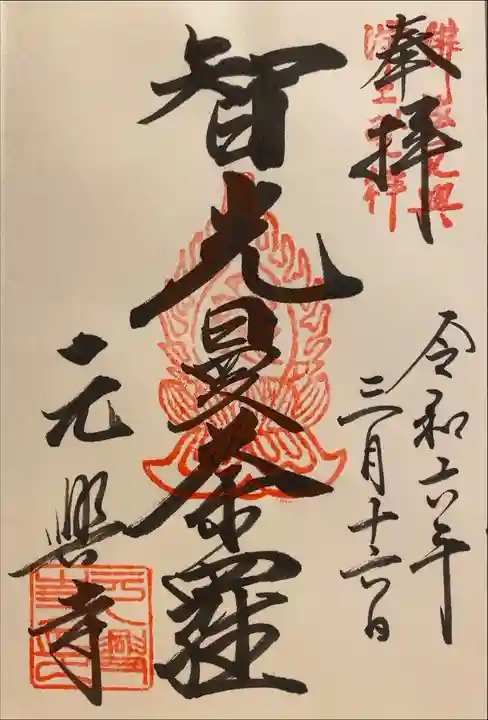 奉拝
令和六年
三月十六日
智光曼荼羅
元興寺